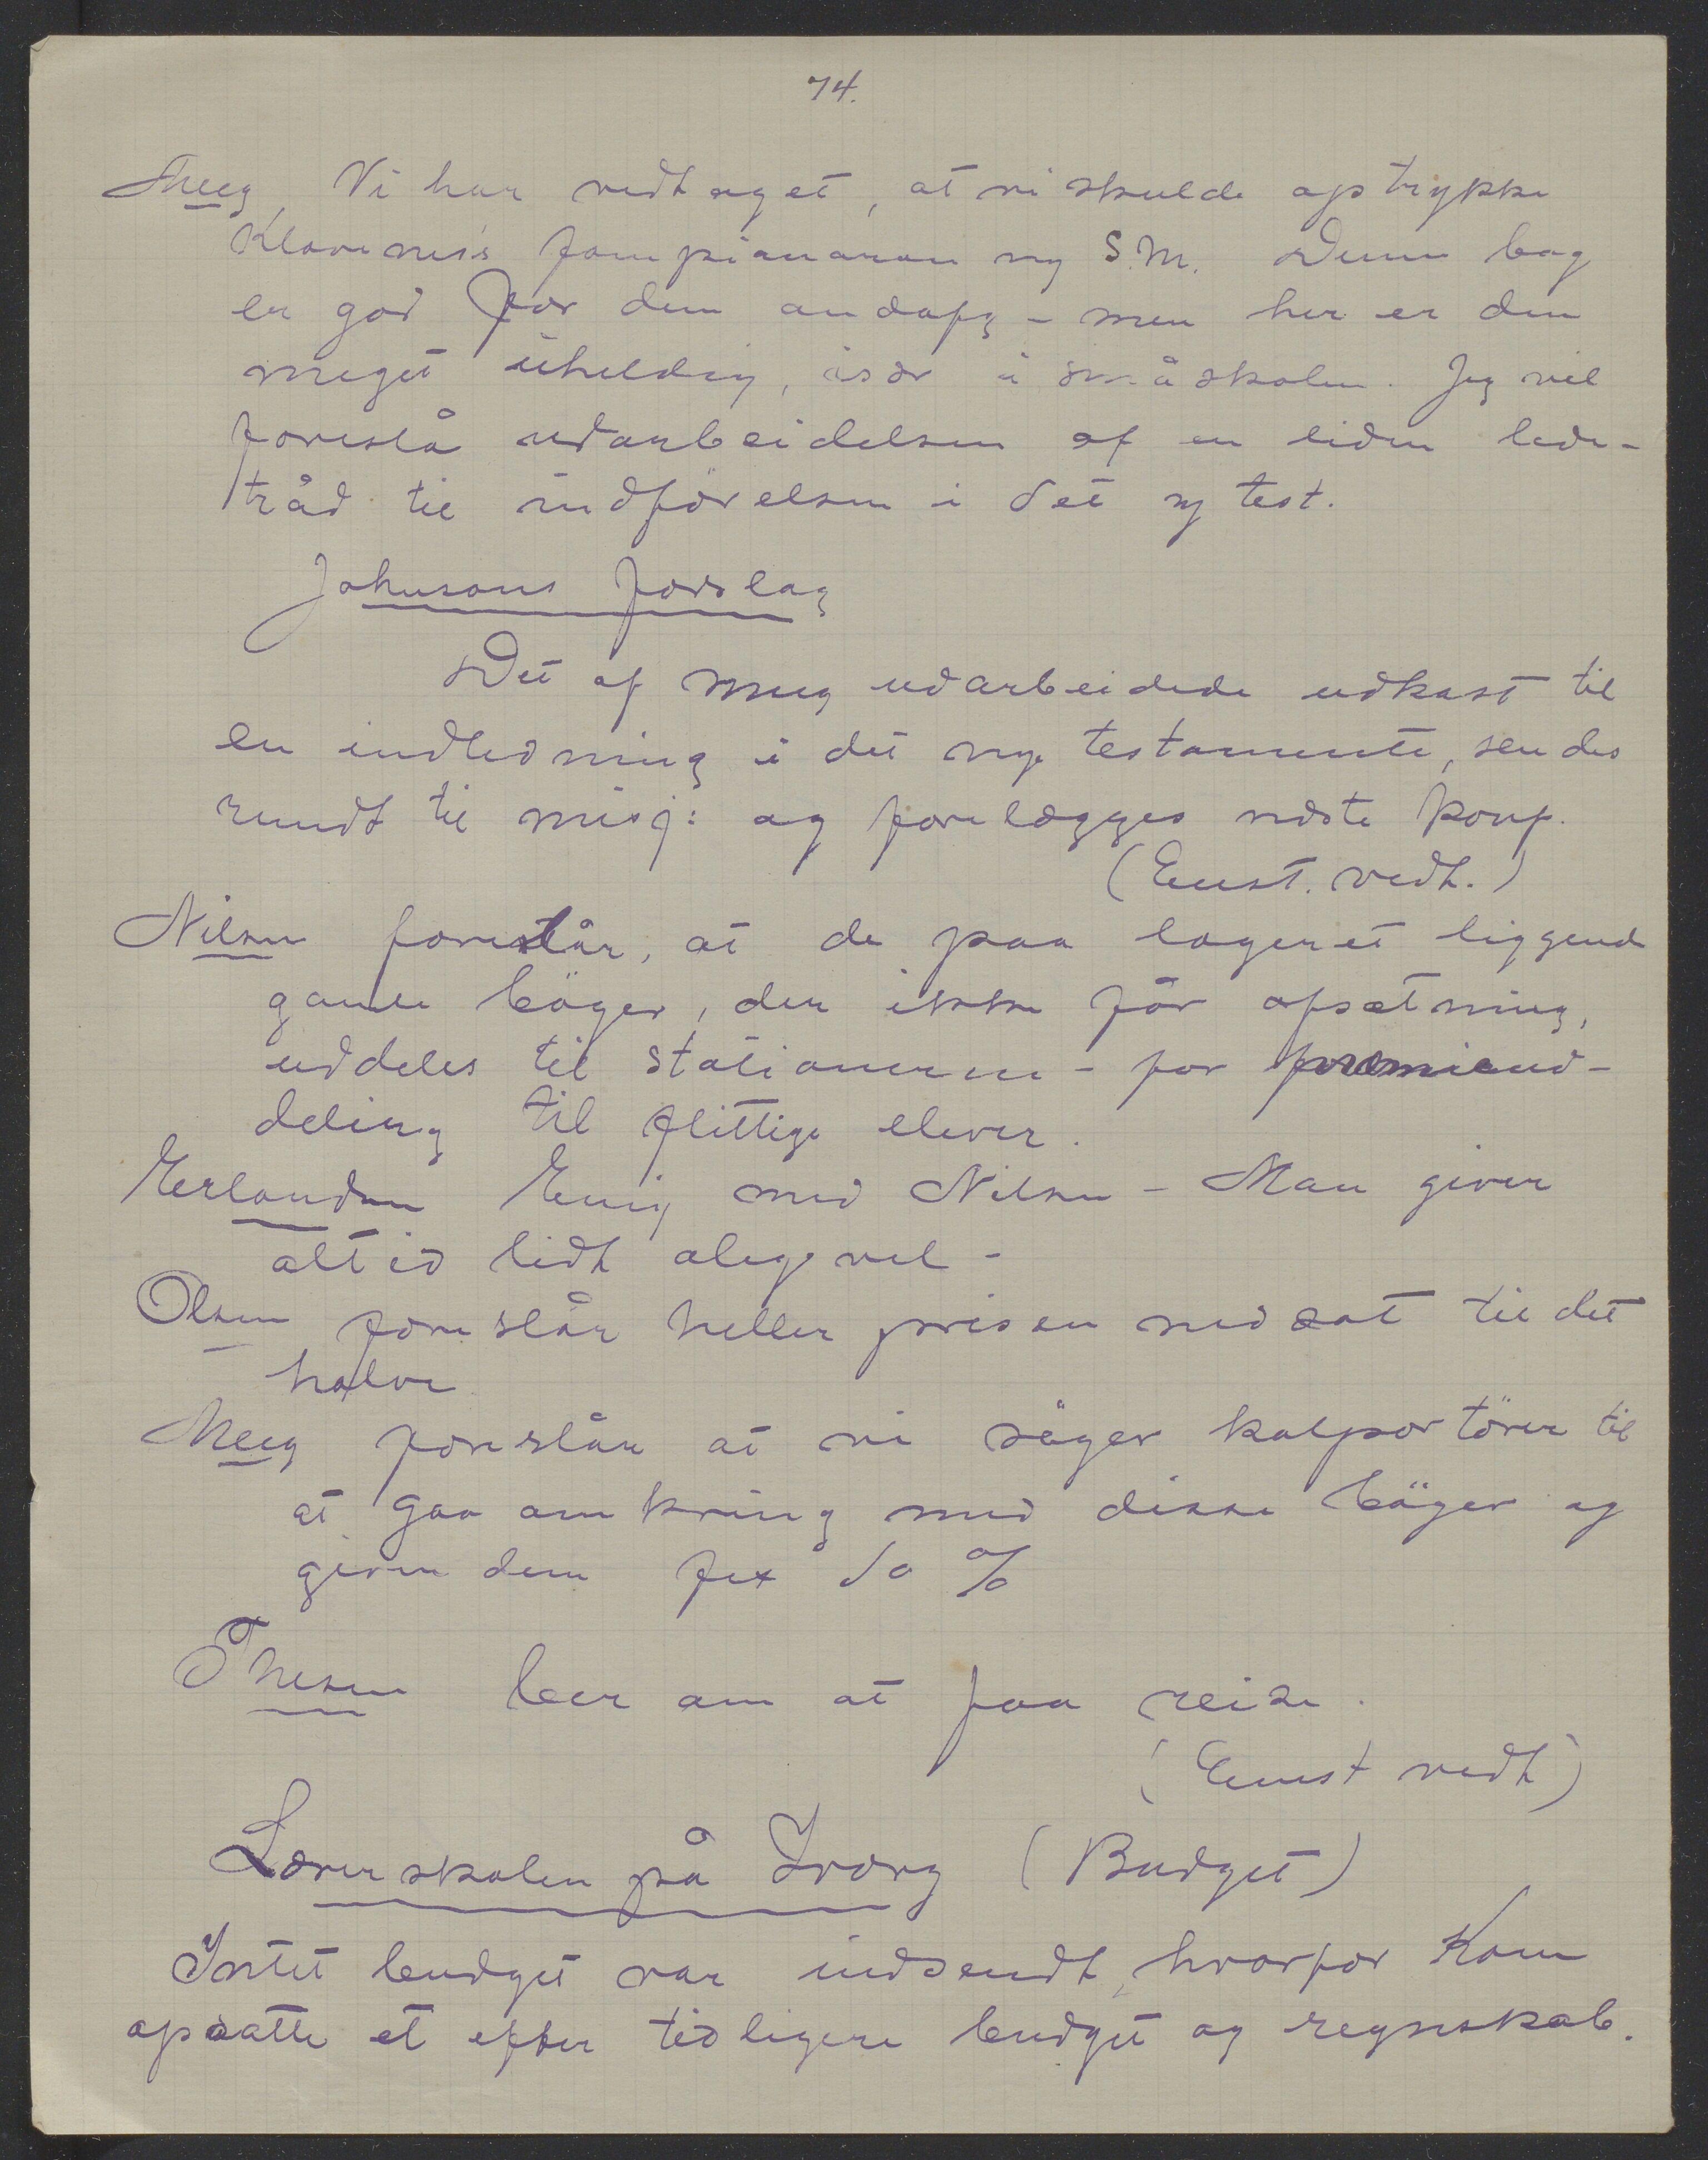 74.
Meeg Vi har vedtaget, at vi skulde optrykke
Klavenes's fampianaran ny S.M. Denne bog
er god for dem andafy – men her er den
meget uheldig, især i småskolen. Jeg vil
foreslå udarbeidelsen af en liden lede-
tråd til indførelsen i det ny test.
Johnsons forslag
Det af mig udarbeidede udkast til
en indledning i det nye testamente, sendes
rundt til misj: og forelægges næste konf.
(Enst. vedt.)
Nilsen foreslår, at de paa lageret liggende
gamle böger, der ikke får afsætning,
uddeles til stationerne – for præmieud-
deling til flittige elever.
Erlandsen Enig med Nilsen – Man giver
altid lidt aligevel –
Olsen foreslår heller prisen nedsat til det
halve
Meeg foreslår at vi söger kolportörer til
at gaa omkring med disse böger og
given dem fex 50 %
Thesen beer om at faa reise.
(Enst vedt)
Lærerskolen på Ivory (Budget)
Intet budget var indsendt, hvorfor Kom
opsatte et efter tidligere budget og regnskab.